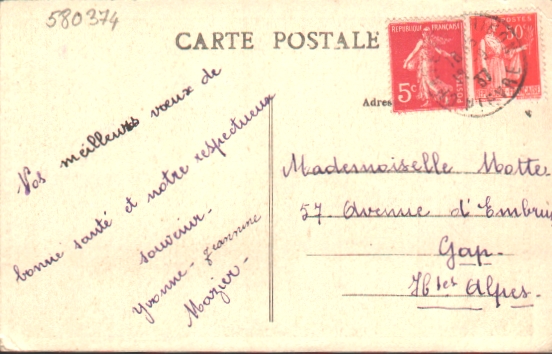 580374
CARTE POSTALE
REPUBLIQUE FRANÇAISE
5c
POSTES
POSTES
50c
Adres
Vos meilleurs vœux de
bonne santé et notre respectueux
souvenir.
Yvonne - Jeannine
Mazier -
Mademoiselle Motte
57. Avenue d'Embrun
Gap.
Htes Alpes.